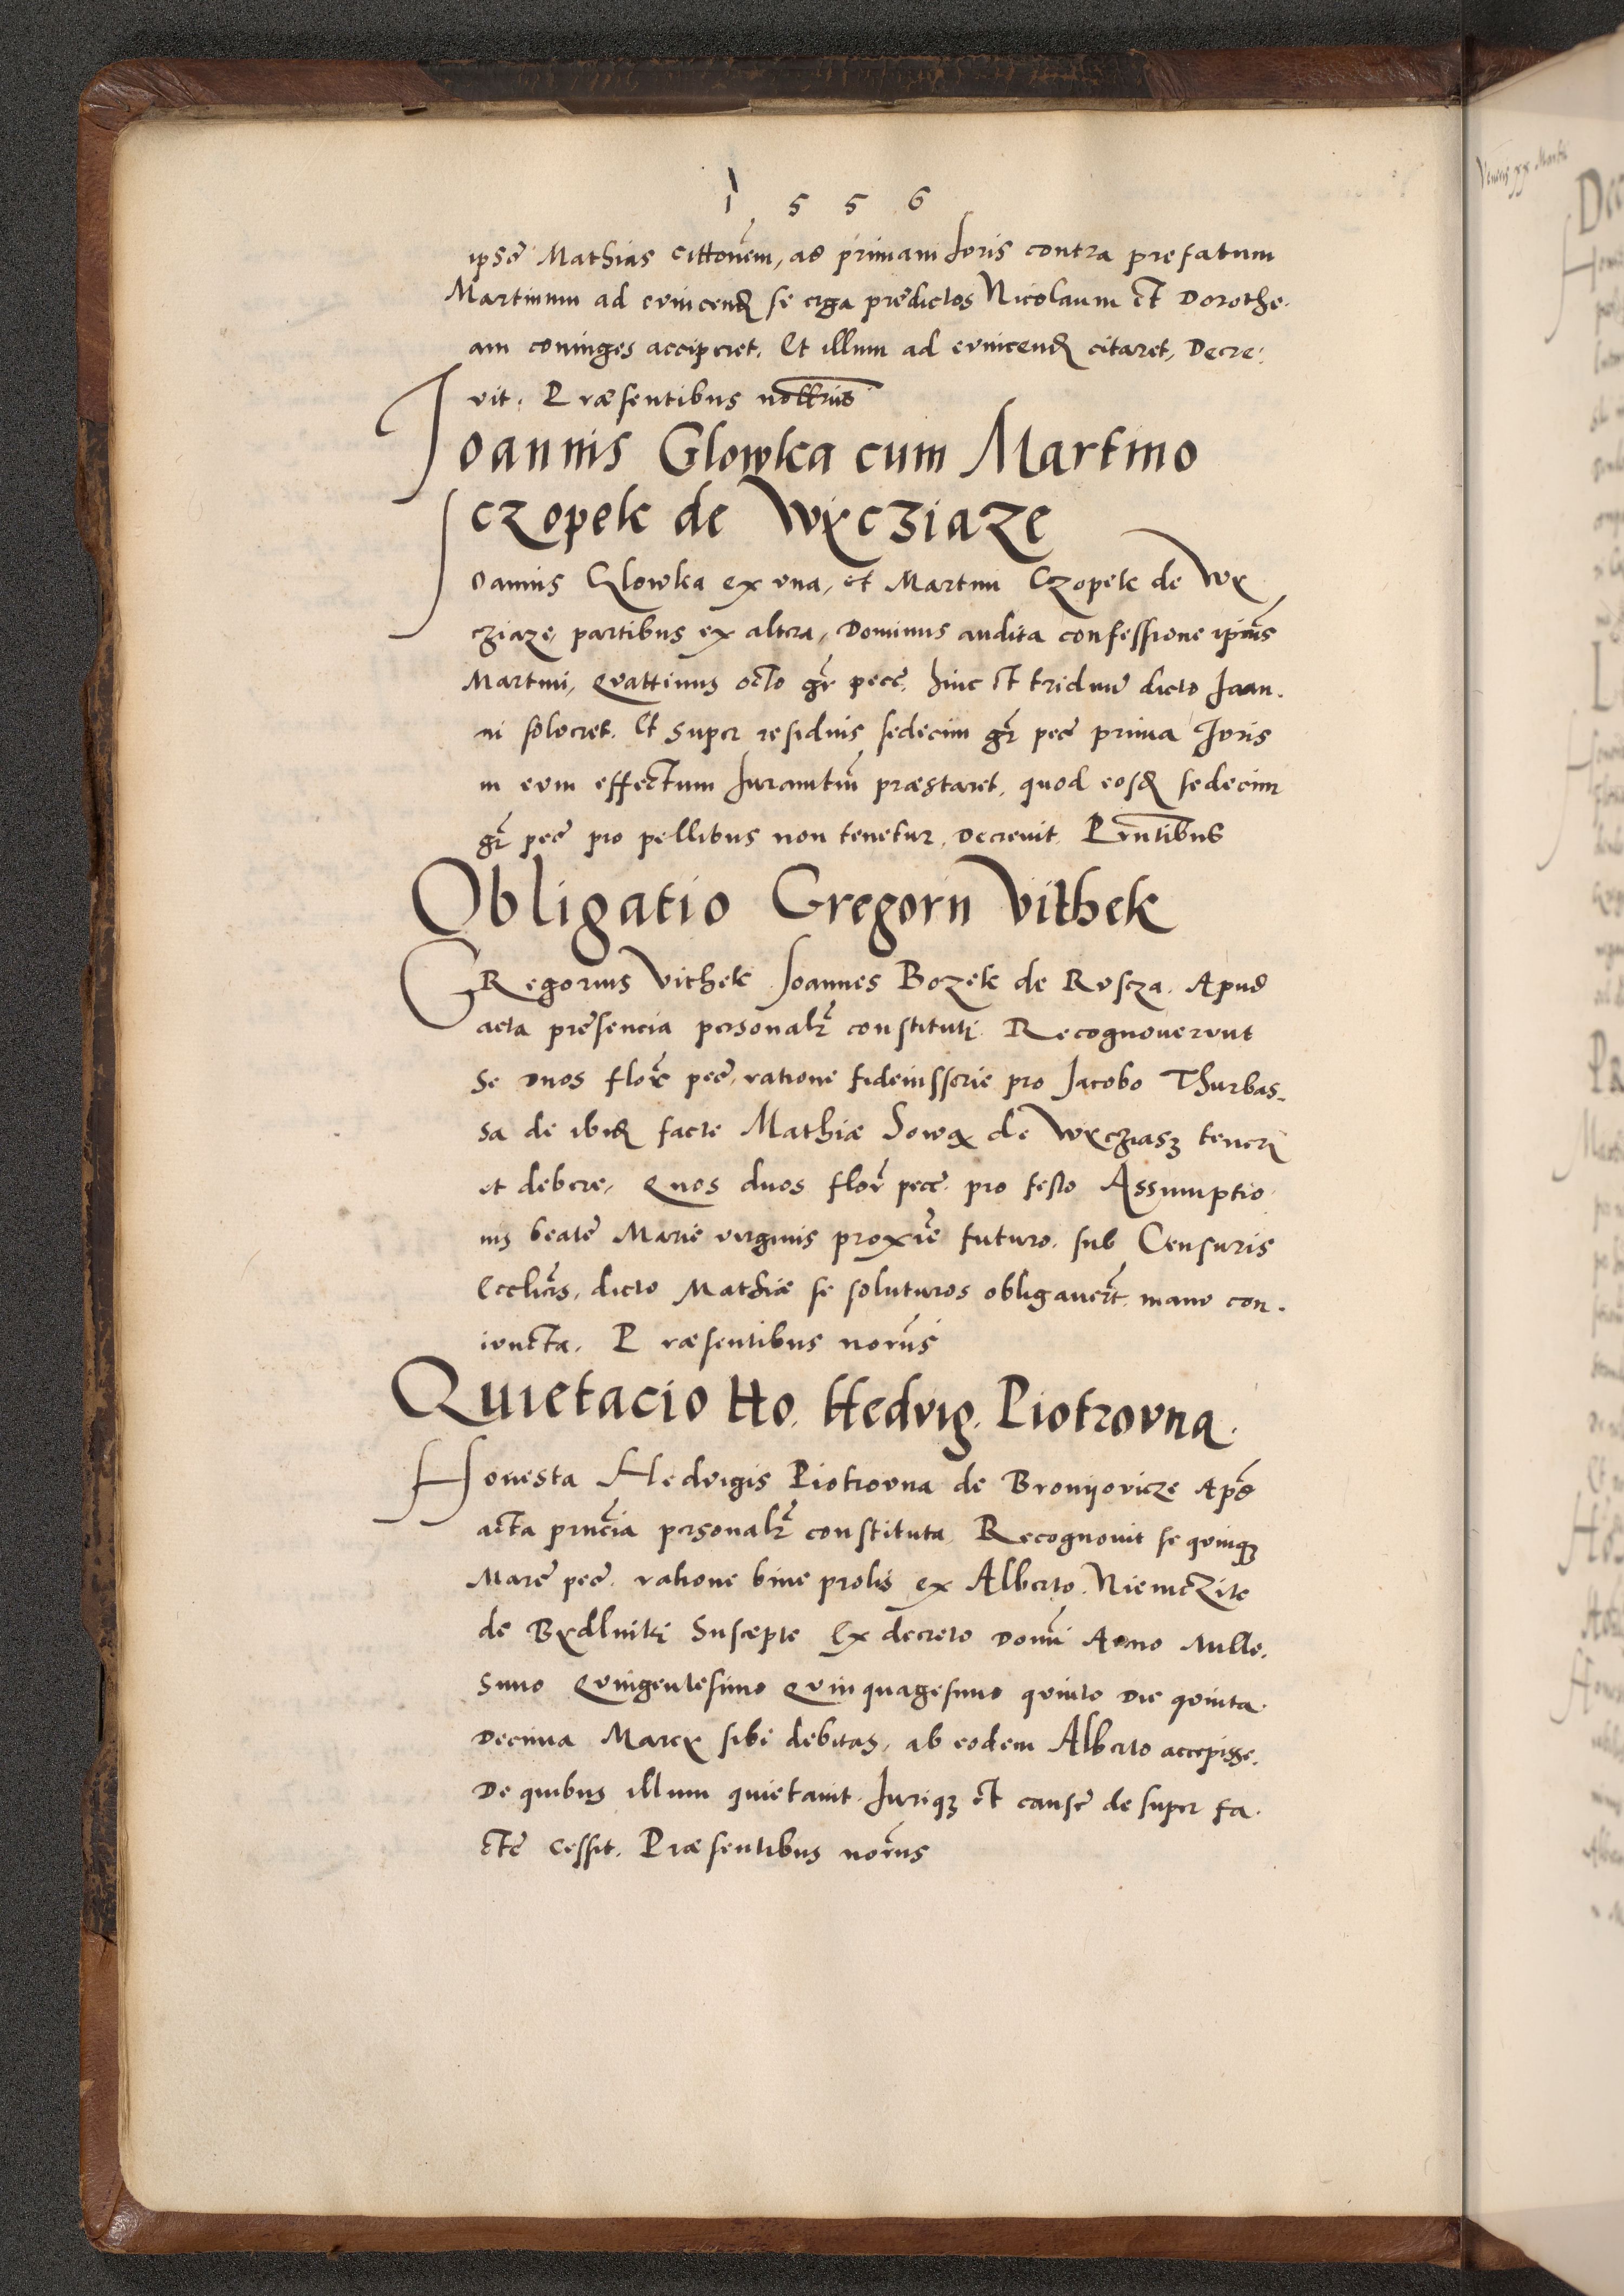 1 5 5 6
ipse Mathias cittonem, ad primam Juris contra prefatum
Martinum ad evincend se erga predictos Nicolaum et Dorothe.
am coniuges acciperet. Et illum ad evincend citaret, Decre:
vit. Præsentibus
Joannis Glowka cum Martino
czopek de Wxcziaze
Joannis Glowka ex vna, et Martini Czopek de Wx
cziaze, partibus ex altera, Dominus audita confessione ipius
Martini, Quattinus octo gr pecc. hinc et triduu dicto Joan.
ni solveret. Et super residuis sedecim gr pec prima Juris
in eum effectum Juramtum præstaret, quod eosd sedecim
gr pec pro pellibus non tenetur, decrevit. Prntibus
Obligatio Gregorii Vithek
GRegorius Vithek Joannes Bozek de Rvscza. Apud
acta presencia personalr constituti. Recognoverunt
se duos flor pec, ratione fideiussorie pro Jacobo Thurbas-
sa de ibid facte Mathiæ Sowa de Wxcziasz teneri
et debere, Quos duos flor pecc. pro festo Assumptio
nis beate Marie virginis proxie futuro, sub Censuris
Ecclicis, dicto Mathiæ se soluturos obligavert. manu con.
iuncta. Præsentibus norus
Quietacio Ho. Hedvig. Piotrovna.
Honesta Hedvigis Piotrovna de Bronyovicze Apd
acta prncia personalr constituta Recognovit se quinq
Marc pec. ratione bine prolis ex Alberto Niemczite
de Bxdlniki Suscepte Ex decreto Domi Anno Mille.
simo Quingentesimo Quinquagesimo quinto Die quinta
Decima Marcx sibi debitas, ab eodem Alberto accepisse.
De quibus illum quietavit Juriq et cause de super fa.
cte cessit. Præsentibus norus
Veneris xx Martii